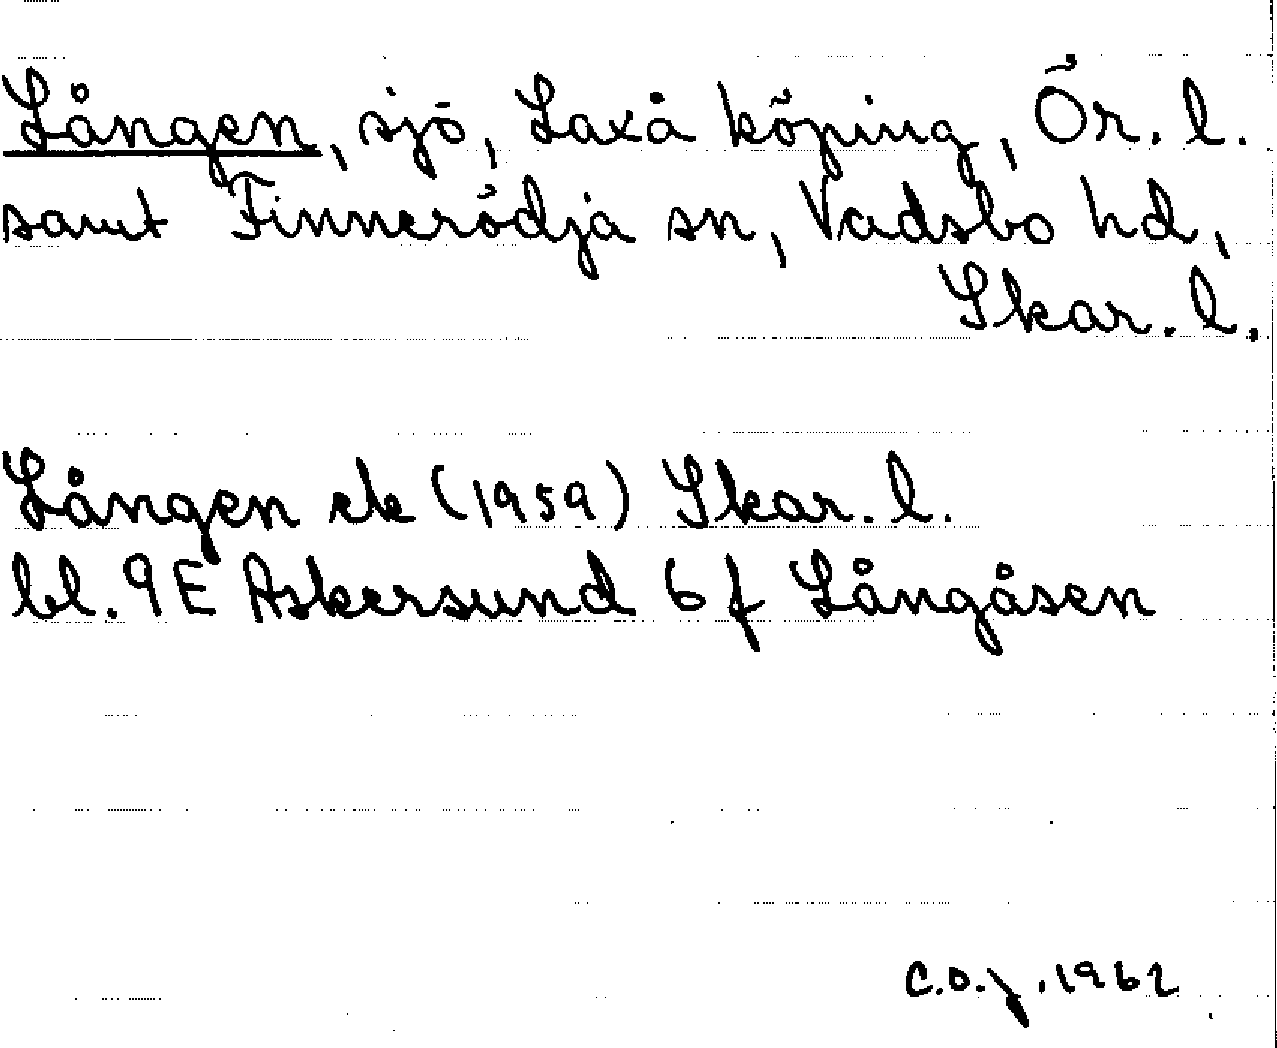 Lången, sjö, Laxå köping, Ör. l.
samt Finnerödja sn, Vadsbo hd,
Skar. l.
Lången ek (1959) Skar. l.
bl. 9E Askersund 6 f Långåsen
C.O.J. 1962